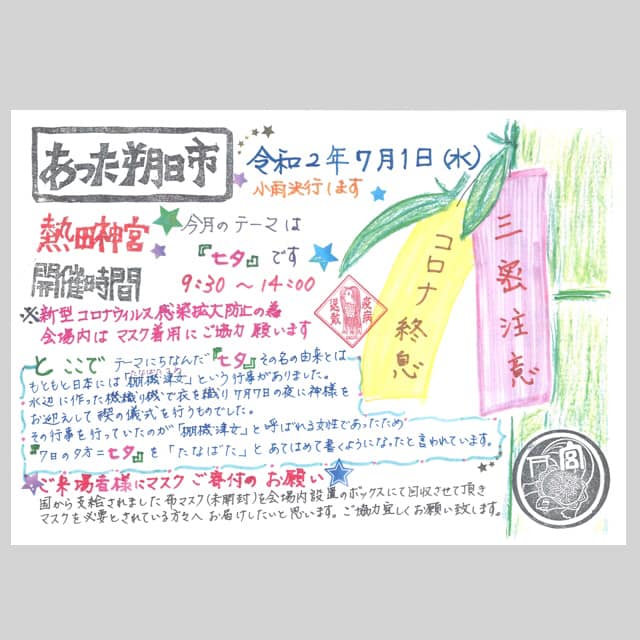 あった朔日市
令和2年7月1日(水)
小雨決行します
熱田神宮
今月のテーマは
『七夕』です
開催時間
9:30〜14:00
※新型コロナウィルス感染拡大防止の為
会場内はマスク着用にご協力願います
疫病
退散
コロナ終息
三密注意
ところで テーマにちなんだ『七夕』その名の由来とは
たなばたつめ
もともと日本には「棚機津女」という行事がありました。
水辺に作った機織り機で衣を織り7月7日の夜に神様を
お迎えして禊の儀式を行うものでした。
その行事を行っていたのが「棚機津女」と呼ばれる女性であったため
『7日の夕方=七夕』を「たなばた」とあてはめて書くようになったと言われています。
ご来場者様にマスクご寄付のお願い
国から支給されました布マスク(未開封)を会場内設置のボックスにて回収させて頂き
マスクを必要とされている方々へお届けしたいと思います。ご協力宜しくお願い致します。